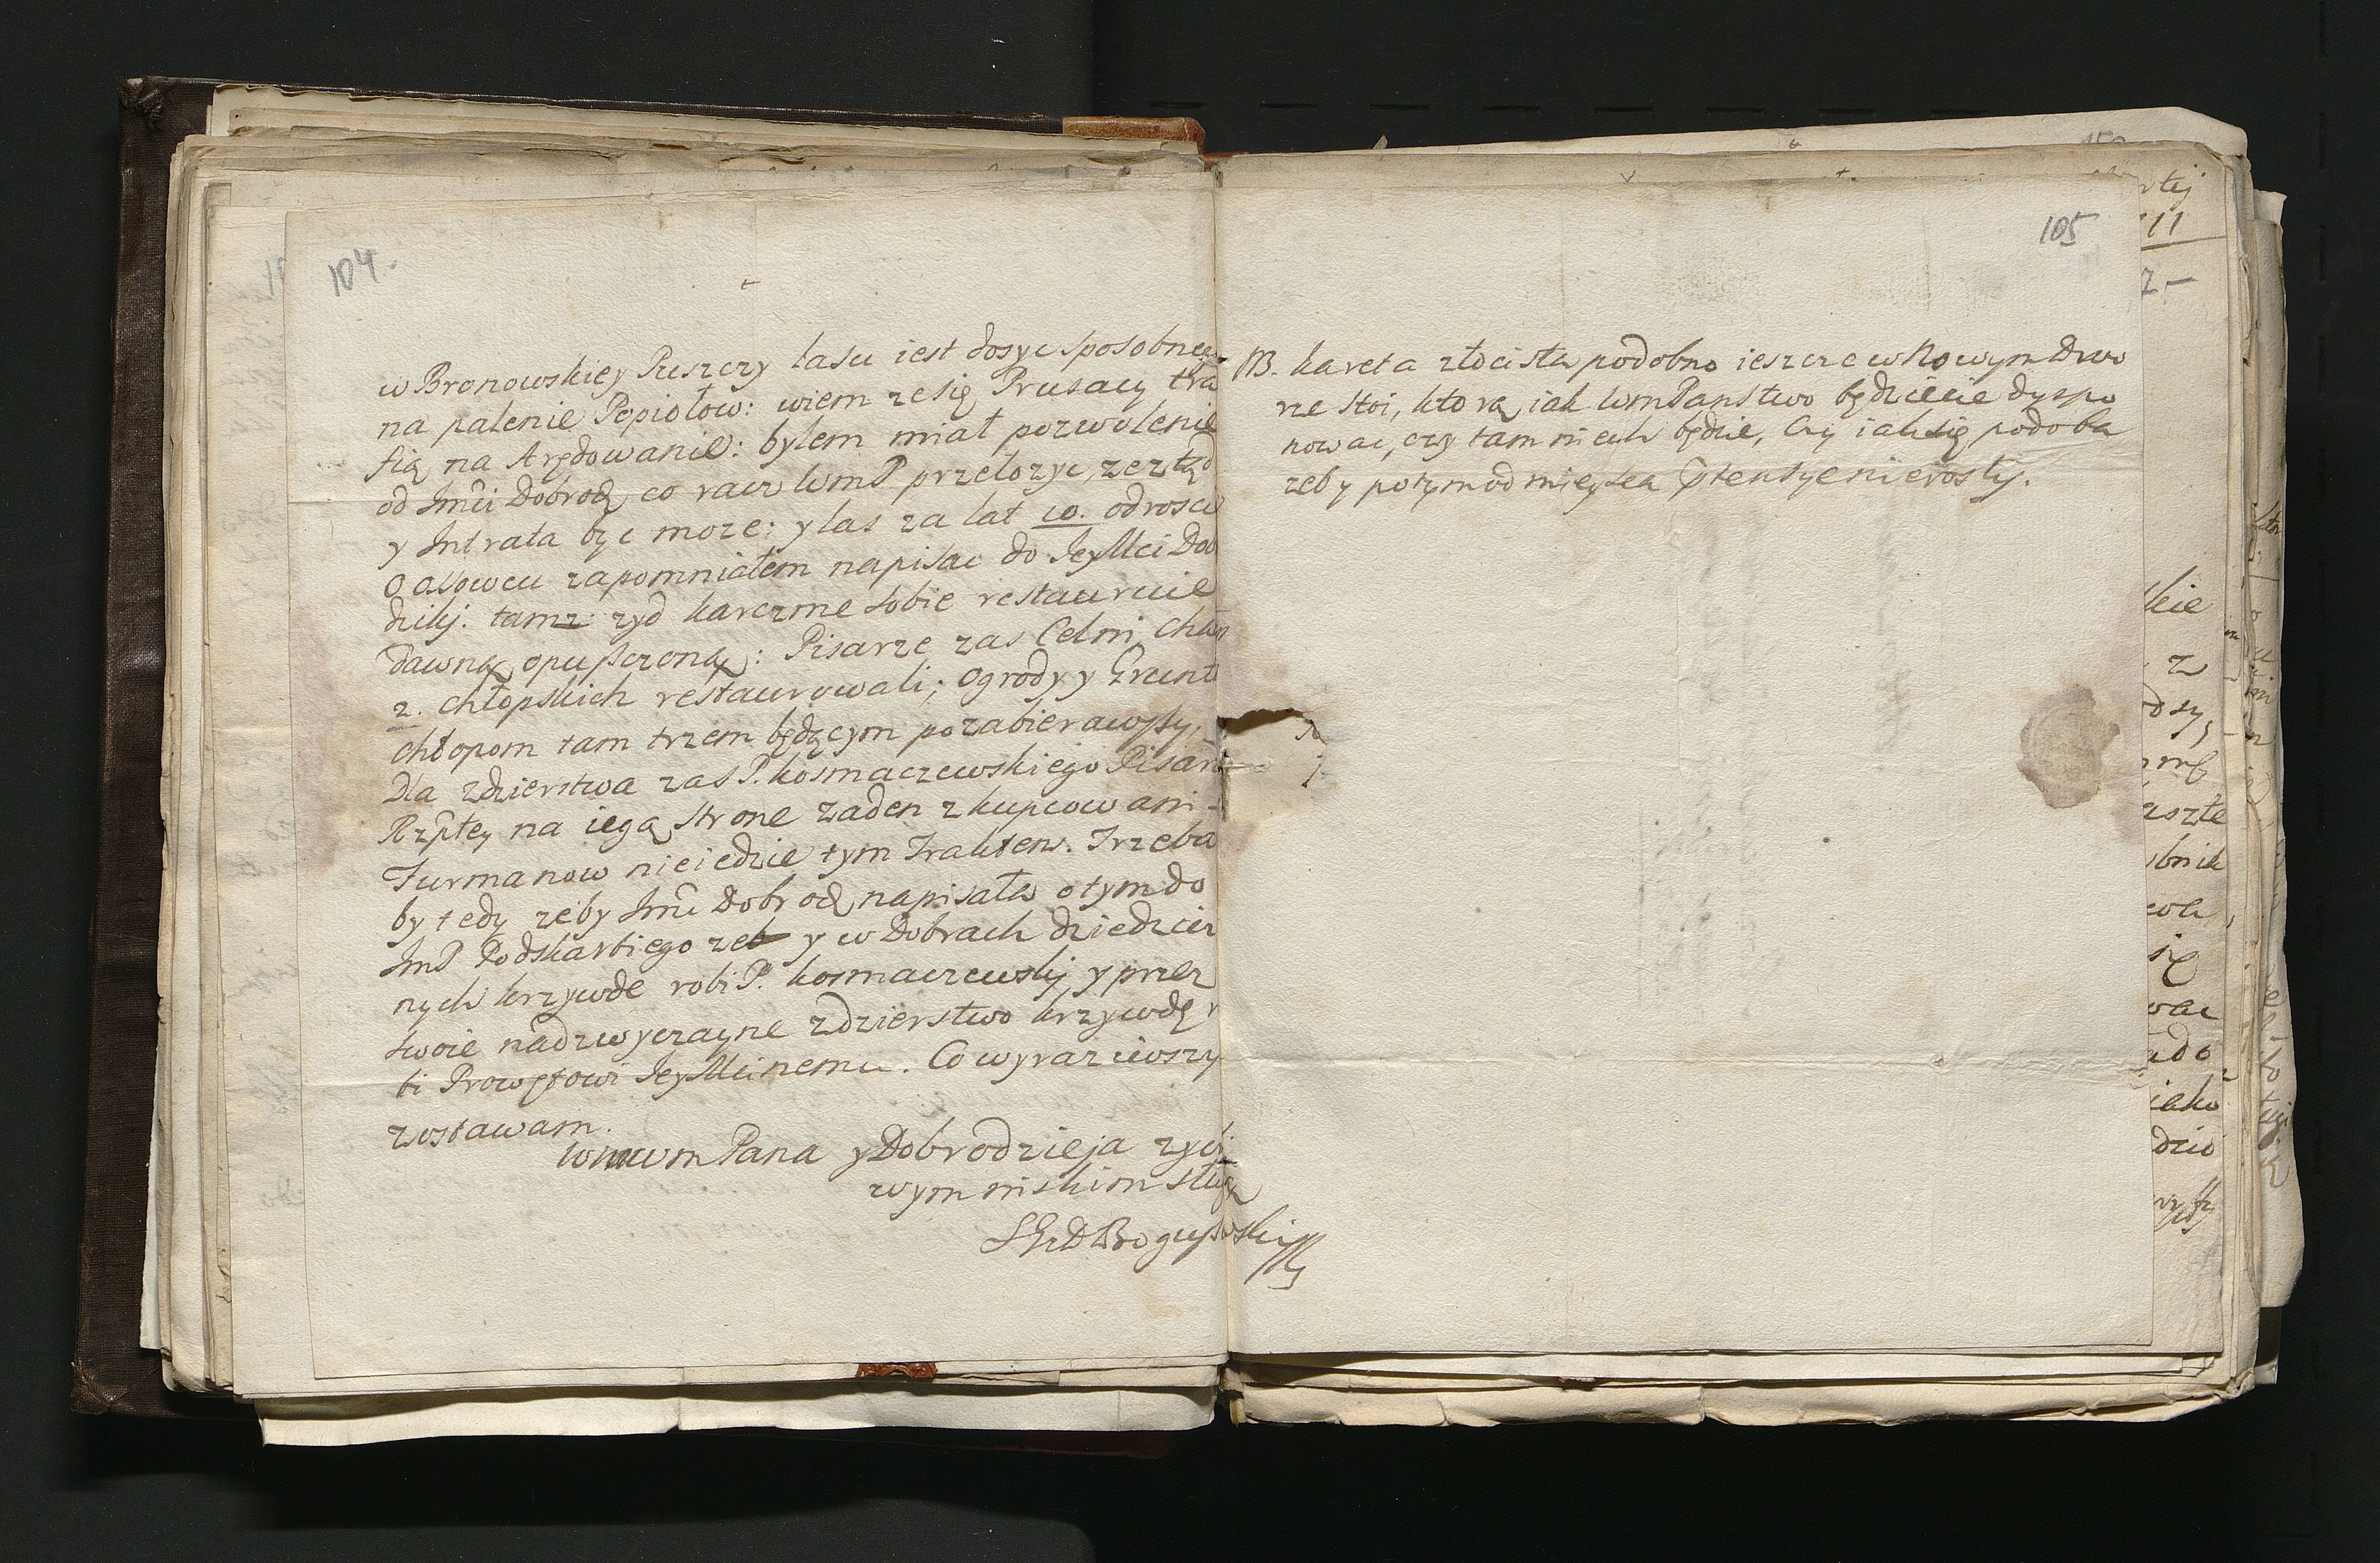 104.
w Bronowskiey Puszczy lasu iest dosyc sposobneg
na palenie Popiołow: wiem ze się Prusacy tra
fią na Arędowanie: byłem miał pozwolenie
od Jmći Dobrodz co racz WmP przełozyc, ze ztąd
y Intrata byc moze: y las za lat 10. odrosci
O Ossowcu zapomniałem napisac do JeyMci Dob
dziki. tam zyd karczme sobie restauruie
dawną opuszczoną: Pisarze zas Celni
2. chłopskich restaurowali; ogrody y Grunt
chłopom tam trzem będącym pozabierawszy.
Dla zdzierstwa zas P. kosmaczewskiego Pisar
Rzptey na iegą strone zaden z kupcow ani
Furmanow nieiedzie tym Traktem. Trzeba
by tedy zeby Jmć Dobrodz napisała o tym do
JmP Podskarbiego zeb y w Dobrach dziedzicz
nych krzywde robi P. kosmaczewskj y przez
swoie nadzwyczayne zdzierstwo krzywdę r
bi Prowętowi JeyMcinemu. Co wyraziwszy
zostawam.
Pana y Dobrodzieja zycz
wym niskim sługą
Bogusławski
105
NB. kareta złocista podobno ieszcze w Nowym Dwo
rze stoi, ktorą iak WmPanstwo będziecie dyspo
nowac, czy tam niech będzie, czy iak się podoba
zeby potym od mieysca Ptensye nierosły.